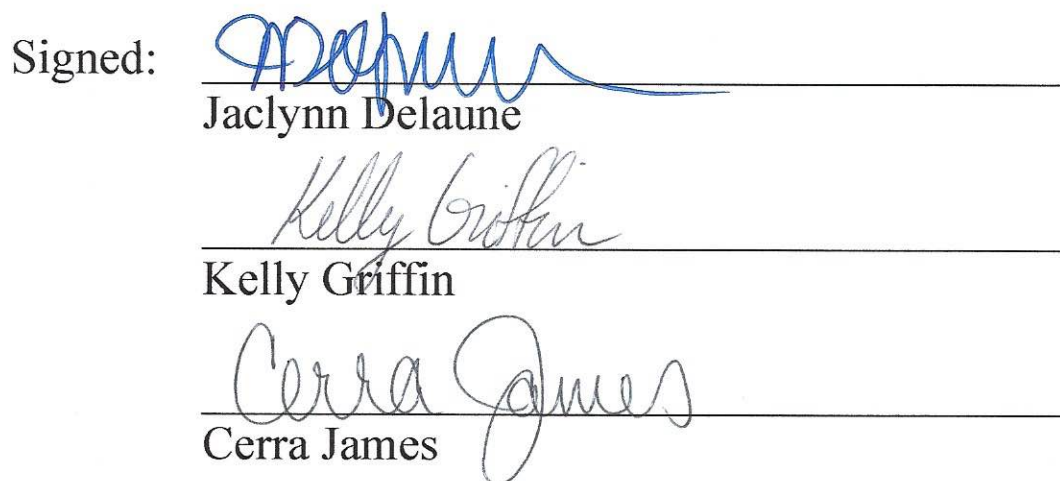 Signed:
Jaclynn Delaune
Kelly Griffin
Kelly Griffin
Cerra James
Cerra James